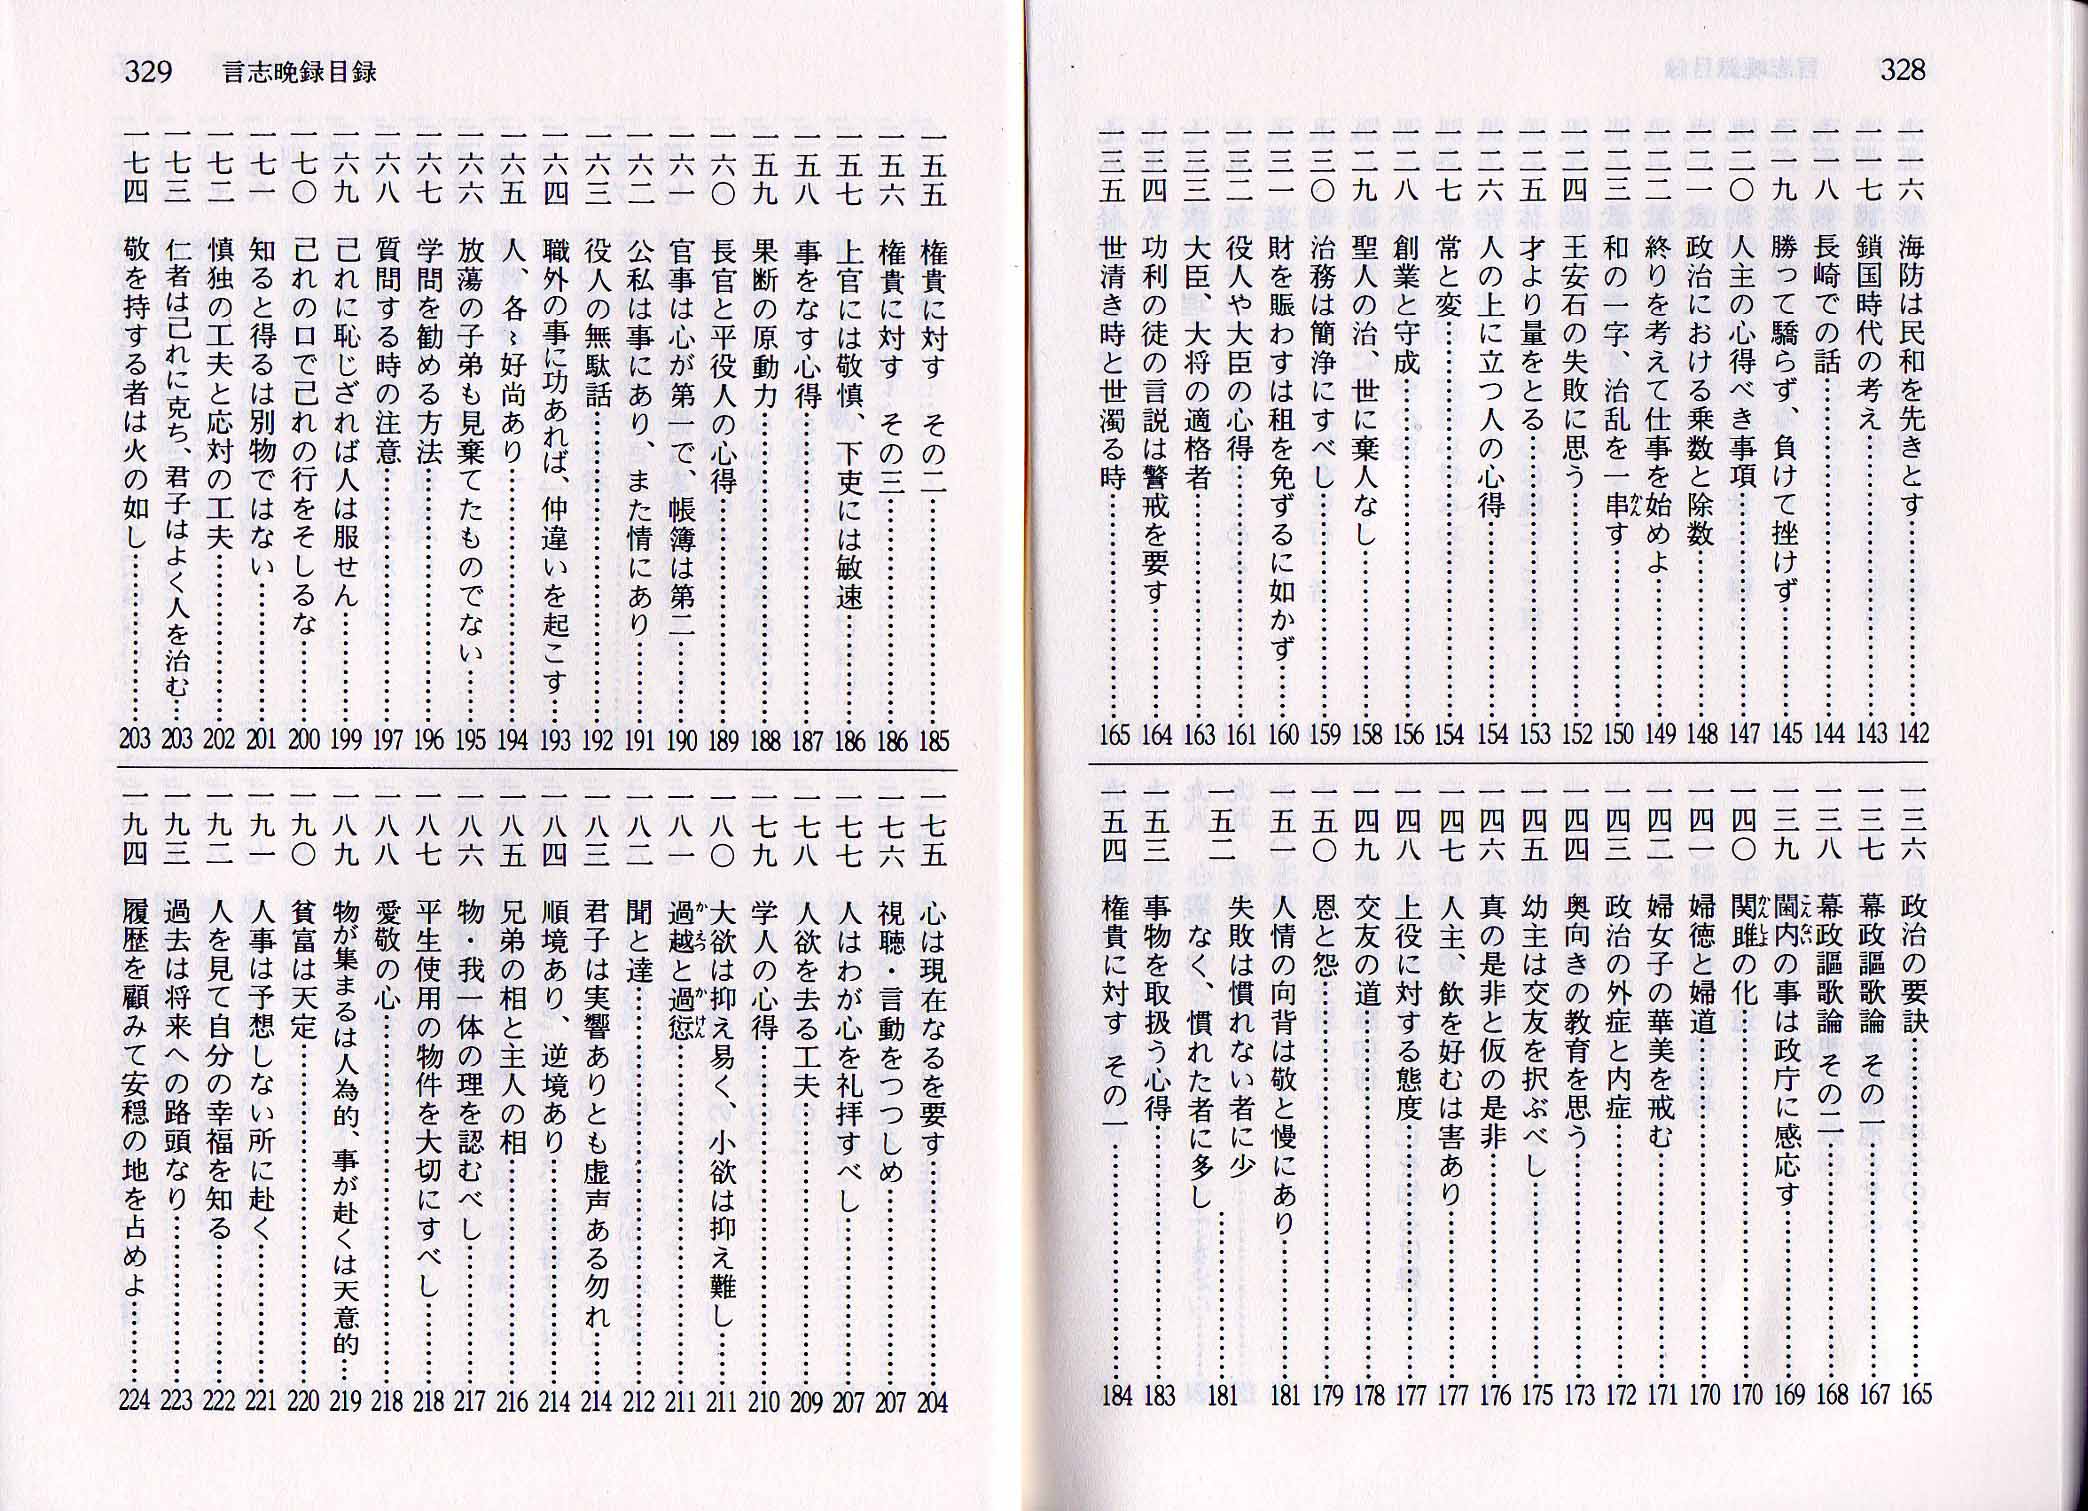 328
一一六　海防は民和を先きとす……142
一一七　鎖国時代の考え……143
一一八　長崎での話……144
一一九　勝って驕らず、負けて挫けず……145
一二〇　人主の心得べき事項……147
一二一　政治における乗数と除数……148
一二二　終りを考えて仕事を始めよ……149
一二三　和の一字、治乱を一串す……150
かん
一二四　王安石の失敗に思う……152
一二五　才より量をとる……153
一二六　人の上に立つ人の心得……154
一二七　常と変……154
一二八　創業と守成……156
一二九　聖人の治、世に棄人なし……158
一三〇　治務は簡浄にすべし……159
一三一　財を賑わすは租を免ずるに如かず……160
一三二　役人や大臣の心得……161
一三三　大臣、大将の適格者……163
一三四　功利の徒の言説は警戒を要す……164
一三五　世清き時と世濁る時……165
一三六　政治の要訣……165
一三七　幕政謳歌論　その一……167
一三八　幕政謳歌論　その二……168
一三九　閫内の事は政庁に感応す……169
こんない
一四〇　関雎の化……170
かんしょ
一四一　婦徳と婦道……170
一四二　婦女子の華美を戒む……171
一四三　政治の外症と内症……172
一四四　奥向きの教育を思う……173
一四五　幼主は交友を択ぶべし……175
一四六　真の是非と仮の是非……176
一四七　人主、飲を好むは害あり……177
一四八　上役に対する態度……177
一四九　交友の道……178
一五〇　恩と怨……179
一五一　人情の向背は敬と慢にあり……181
一五二　失敗は慣れない者に少
なく、慣れた者に多し……181
一五三　事物を取扱う心得……183
一五四　権貴に対す　その一……184
329　言志晩録目録
一五五　権貴に対す　その二……185
一五六　権貴に対す　その三……186
一五七　上官には敬慎、下吏には敏速……186
一五八　事をなす心得……187
一五九　果断の原動力……188
一六〇　長官と平役人の心得……189
一六一　官事は心が第一で、帳簿は第二……190
一六二　公私は事にあり、また情にあり……191
一六三　役人の無駄話……192
一六四　職外の事に功あれば、仲違いを起こす……193
一六五　人、各〻好尚あり……194
一六六　放蕩の子弟も見棄てたものでない……195
一六七　学問を勧める方法……196
一六八　質問する時の注意……197
一六九　己れに恥じざれば人は服せん……199
一七〇　己れの口で己れの行をそしるな……200
一七一　知ると得るは別物ではない……201
一七二　慎独の工夫と応対の工夫……202
一七三　仁者は己れに克ち、君子はよく人を治む……203
一七四　敬を持する者は火の如し……203
一七五　心は現在なるを要す……204
一七六　視聴・言動をつつしめ……207
一七七　人はわが心を礼拝すべし……207
一七八　人欲を去る工夫……209
一七九　学人の心得……210
一八〇　大欲は抑え易く、小欲は抑え難し……211
一八一　過越と過愆……211
かえつ　かけん
一八二　聞と達……212
一八三　君子は実響ありとも虚声ある勿れ……214
一八四　順境あり、逆境あり……214
一八五　兄弟の相と主人の相……216
一八六　物・我一体の理を認むべし……217
一八七　平生使用の物件を大切にすべし……218
一八八　愛敬の心……218
一八九　物が集まるは人為的、事が赴くは天意的……219
一九〇　貧富は天定……220
一九一　人事は予想しない所に赴く……221
一九二　人を見て自分の幸福を知る……222
一九三　過去は将来への路頭なり……223
一九四　履歴を顧みて安穏の地を占めよ……224